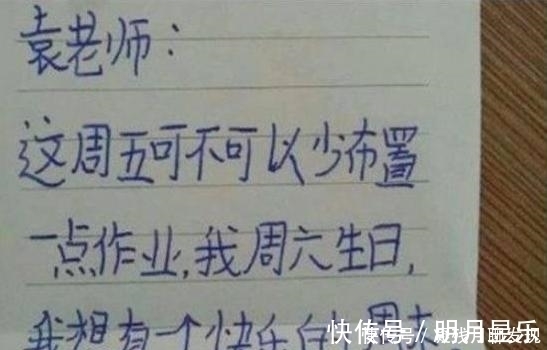 袁老师：
这周五可不可以少布置
一点作业，我周六生日，
我想有一个快乐的周末
快传号／明月是乐